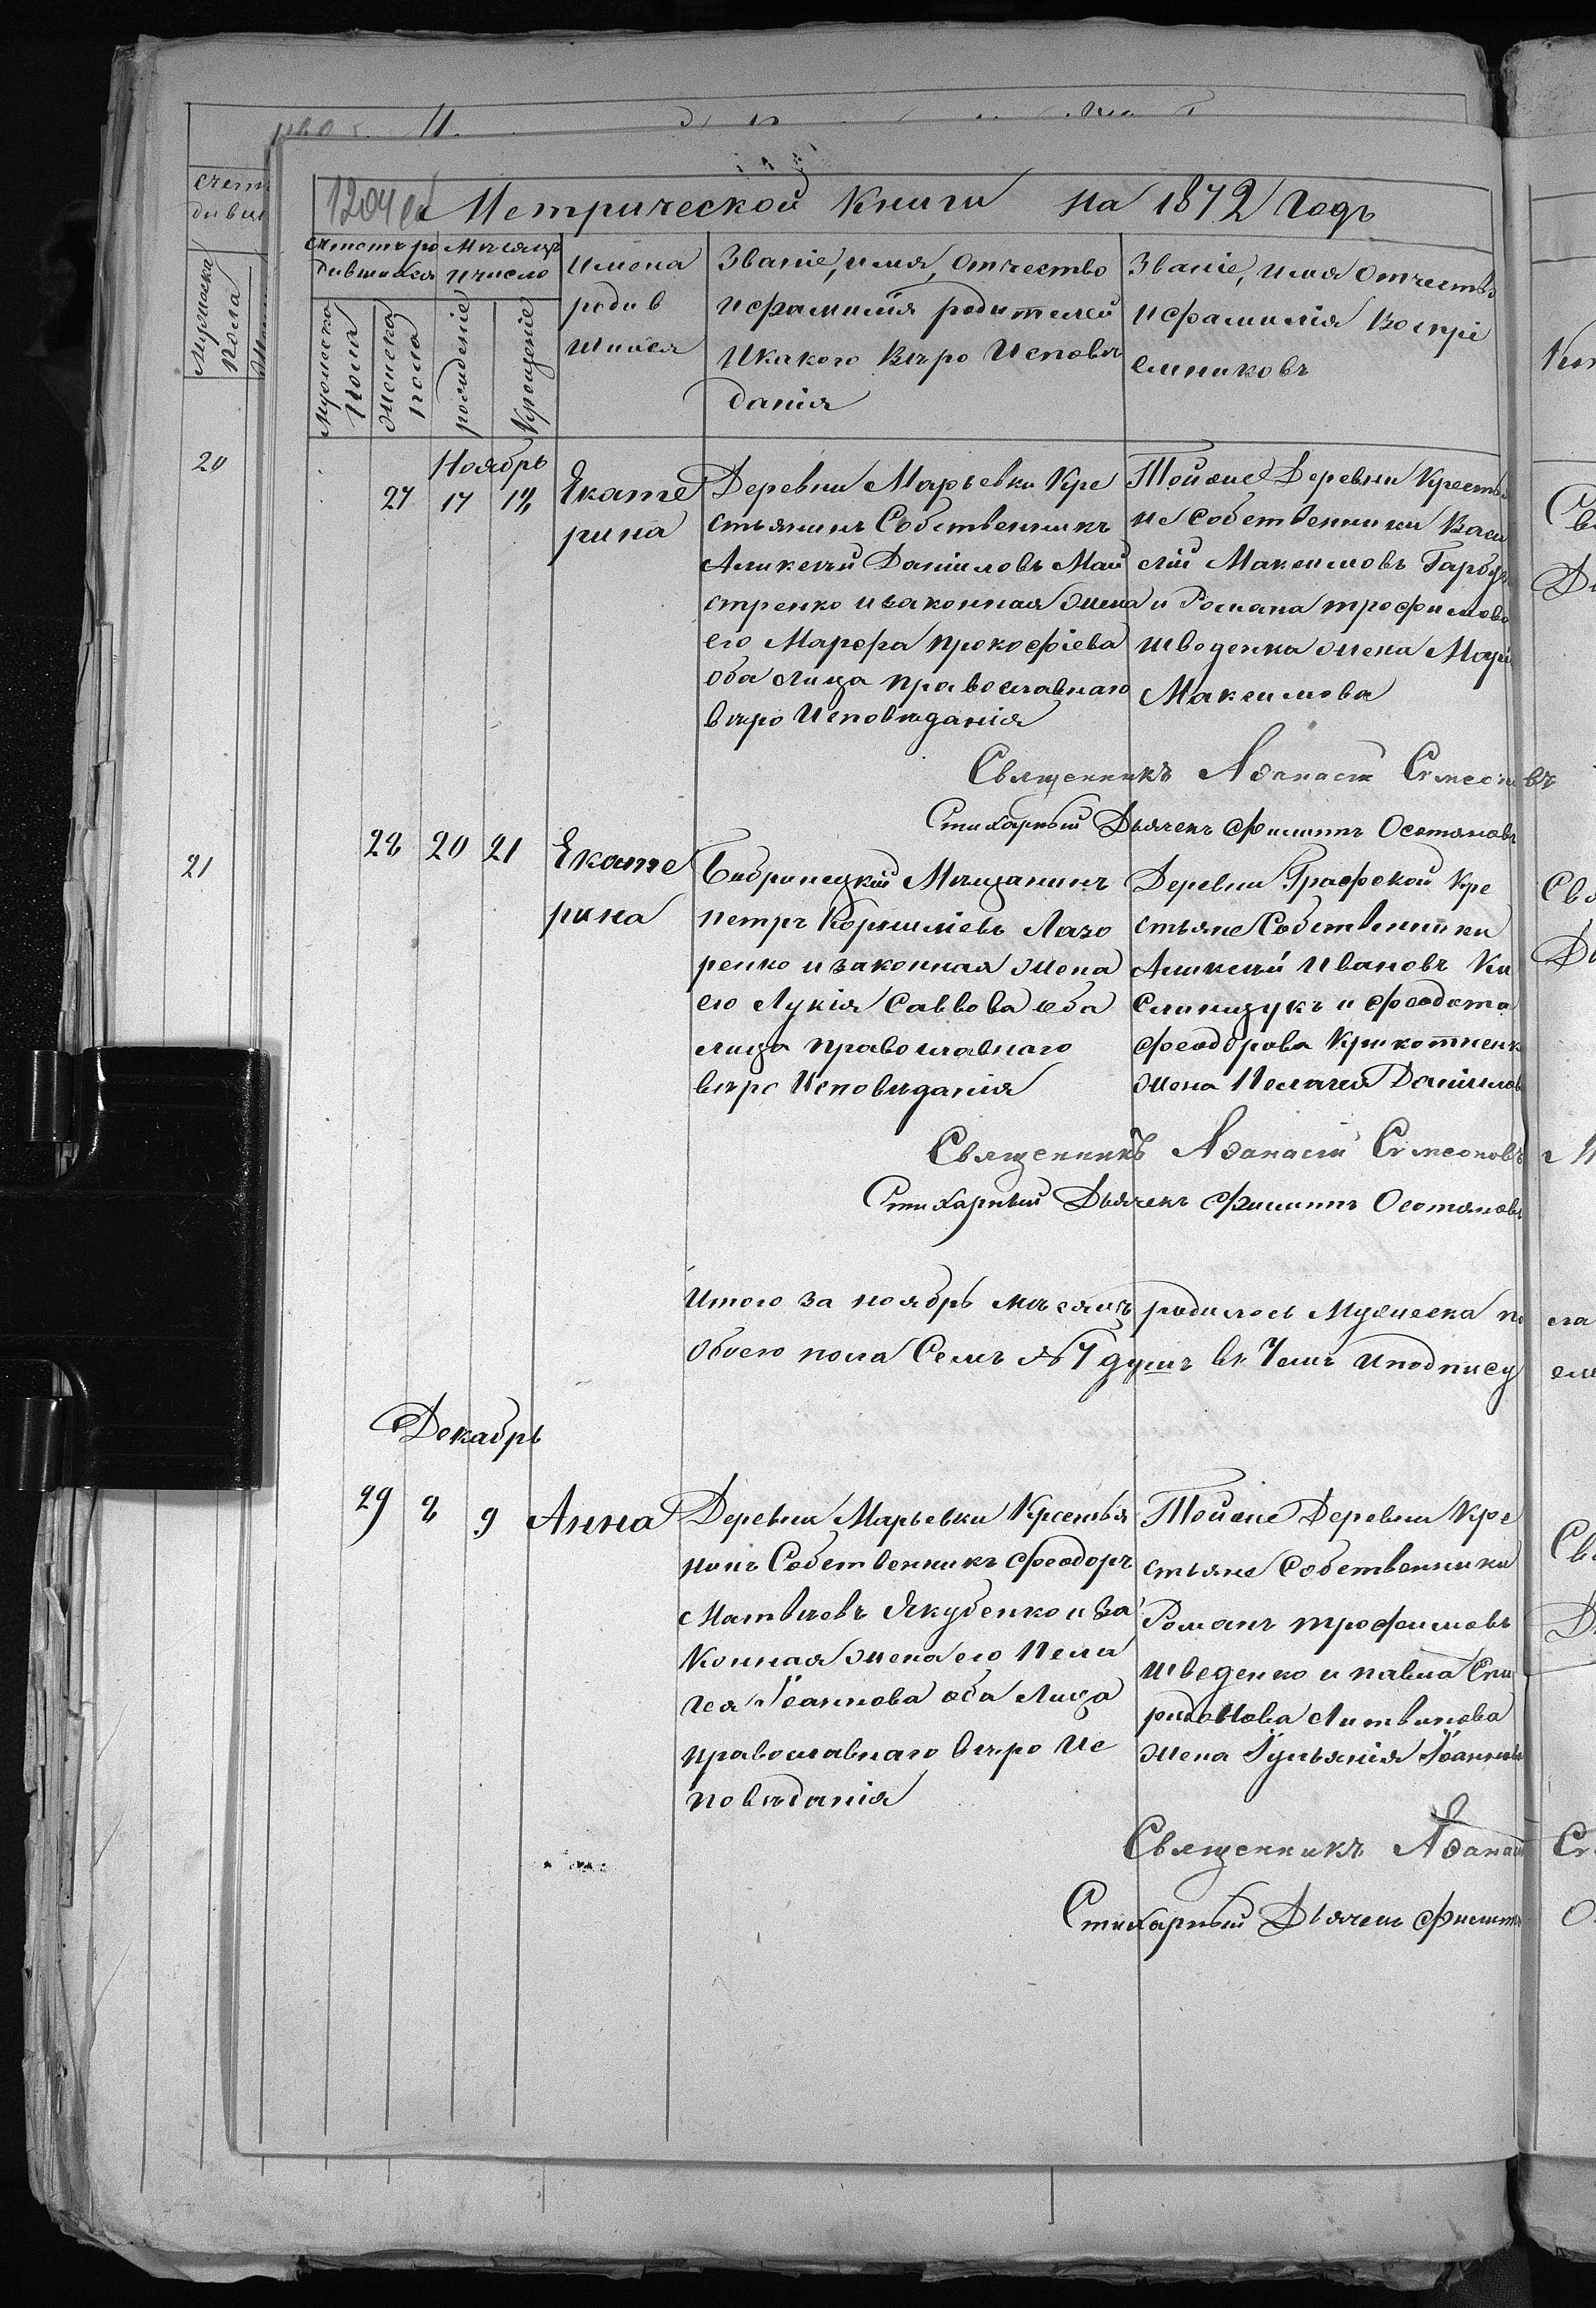 1204 об Метрической Книги на 1872 Годъ
Счетъ ро
дившихся
Мѣсяцъ
и число
Имена
родив
шихся
Званіе, имя, отчество
и фамилія родителей
и какого вѣро Исповѣ
данія
Званіе, имя отчество
и фамилія Воспрі
емниковъ
мужеска пола
женска пола
рожденіе
Крещеніе
Мужеска пола
20
21
Ноябрь
27 17 18
Екате
рина
Деревни Марьевки Кре
стьянинъ Собственникъ
Аликсѣй Даніиловъ Май
стренко и законная жена
его Марфа прокофіева
оба лица православнаго
вѣро Исповѣданія
Тойже Деревни Крестья
не собственники Васи
лій Максимовъ Гарбуз
и Романа трофимова
шведенка жена Марія
Максимова
Священникъ Аѳанасій Симеоновъ
Стихарный Дьячекъ Филиппъ Остяновъ
28 20 21
Екате
рина
Бобринецкій Мѣщанинъ
петръ Корниліевъ Лазо
ренко и законная жена
его Лукія Саввова оба
лица православнаго
вѣро Исповѣданія
Деревни Графской Кре
стьяне Собственники
Аликсѣй Ивановъ Ки
слинщукъ и феодота
феодорова Крикотненк
жена Пелагія Даніилов
Священникъ Аѳанасій Симеоновъ
Стихарный Дьячекъ Филиппъ Остяновъ
Итого за ноябрь мѣсяцъ родилось Мужеска по
Обоего пола Семъ № 7 душъ въ Чемъ и подпису
Декабрь
29 8 9 Анна
Деревни Марьевки Крестья
нинъ Собственникъ феодоръ
Матвѣевъ Якубенко и За
Конная жена его Пела
гея Іоаннова оба Лица
православнаго вѣро Ис
повѣданія
Тойже Деревни Кре
стьяне Собственники
Романъ трофимовъ
шведенко и павла Спи
ридонова Литвинова
жена Іульянія Іоаннова
Священникъ Аѳанасій
Стихарный Дьячекъ Филиппъ